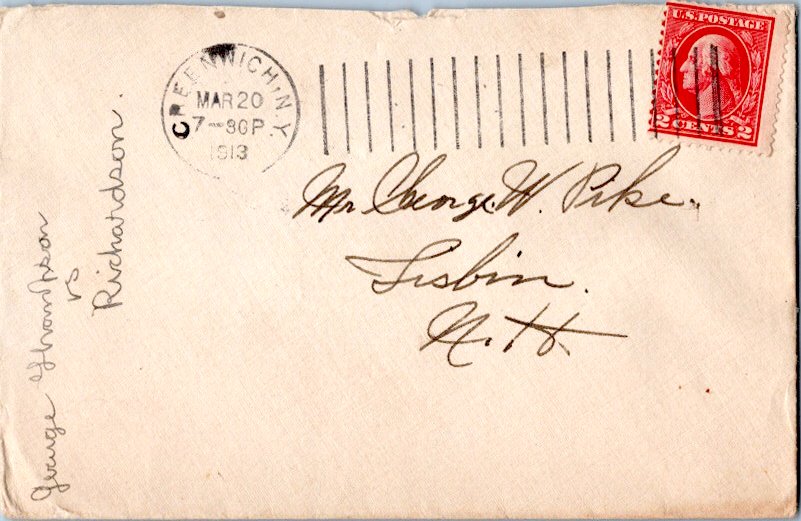 GREENWICH, N.Y.
MAR 20
7-30 P
1913
U.S. POSTAGE
2 CENTS 2
Mr. George W. Pike.
Lisbin.
N. H
George Thompson
vs
Richardson.